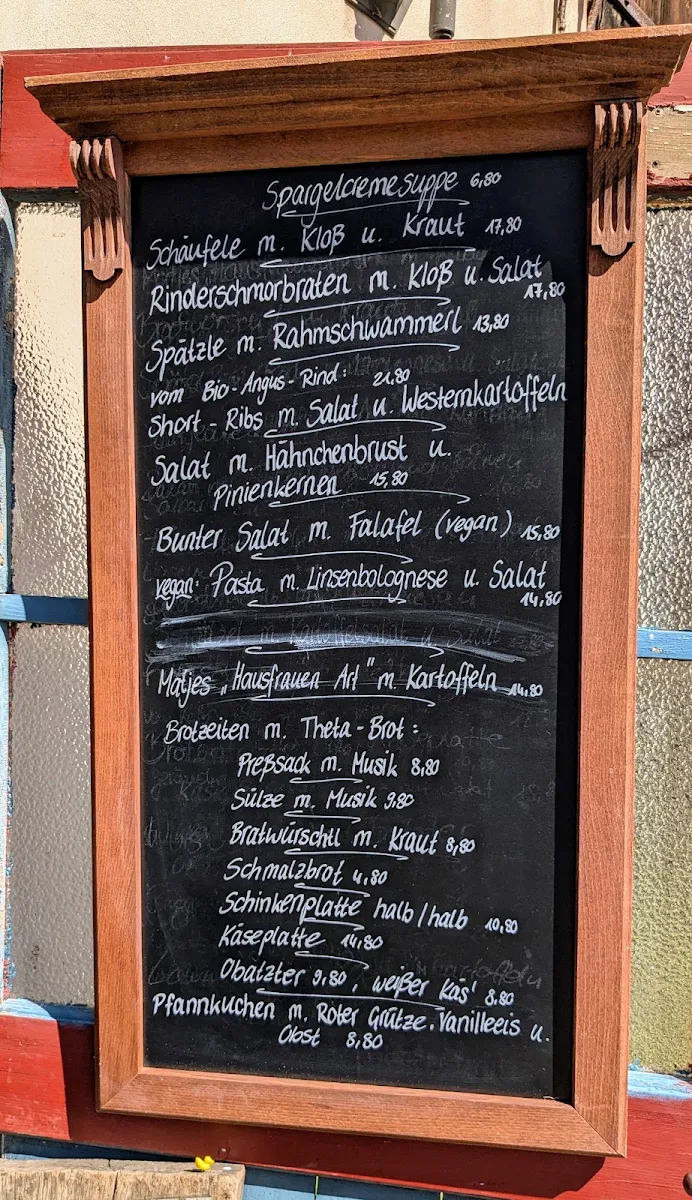 Spargelcremesuppe 6,80
Schäufele m. Kloß u. Kraut 17,80
Rinderschmorbraten m. Kloß u. Salat
17,80
Spätzle m. Rahmschwammerl 13,80
vom Bio-Angus-Rind: 21.80
Short-Ribs m. Salat u. Westernkartoffeln
Salat m. Hähnchenbrust u.
Pinienkernen 15,80
Bunter Salat m. Falafel (vegan) 15,80
vegan: Pasta m. Linsenbolognese u. Salat
14,80
Matjes „Hausfrauen Art" m. Kartoffeln 14,80
Brotzeiten m. Theta-Brot:
Preßsack m. Musik 8,80
Sülze m. Musik 9,80
Bratwürschtl m. Kraut 8,80
Schmalzbrot 4,80
Schinkenplatte halb/halb 10,80
Käseplatte 14,80
Obatzter 9,80, weißer Käs' 8,80
Pfannkuchen m. Roter Grütze, Vanilleeis u.
Obst 8,80